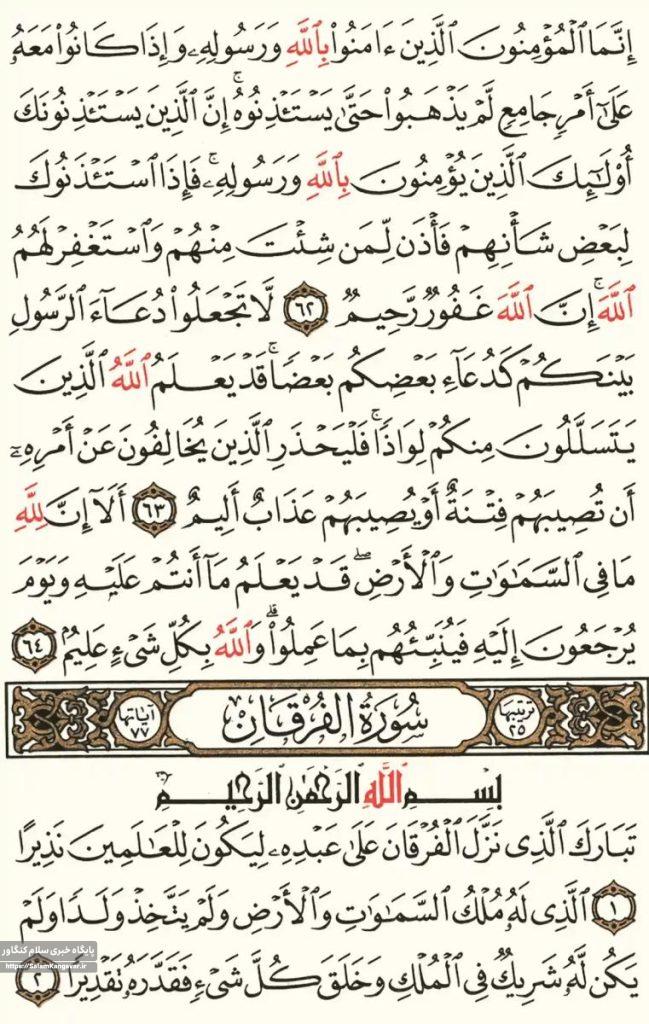 إِنَّمَا ٱلْمُؤْمِنُونَ ٱلَّذِينَ ءَامَنُوا۟ بِٱللَّهِ وَرَسُولِهِۦ وَإِذَا كَانُوا۟ مَعَهُۥ
عَلَىٰٓ أَمْرٍ جَامِعٍ لَّمْ يَذْهَبُوا۟ حَتَّىٰ يَسْتَـْٔذِنُوهُ ۚ إِنَّ ٱلَّذِينَ يَسْتَـْٔذِنُونَكَ
أُو۟لَـٰٓئِكَ ٱلَّذِينَ يُؤْمِنُونَ بِٱللَّهِ وَرَسُولِهِۦ ۚ فَإِذَا ٱسْتَـْٔذَنُوكَ
لِبَعْضِ شَأْنِهِمْ فَأْذَن لِّمَن شِئْتَ مِنْهُمْ وَٱسْتَغْفِرْ لَهُمُ
ٱللَّهَ ۚ إِنَّ ٱللَّهَ غَفُورٌ رَّحِيمٌ ٦٢ لَّا تَجْعَلُوا۟ دُعَآءَ ٱلرَّسُولِ
بَيْنَكُمْ كَدُعَآءِ بَعْضِكُم بَعْضًا ۚ قَدْ يَعْلَمُ ٱللَّهُ ٱلَّذِينَ
يَتَسَلَّلُونَ مِنكُمْ لِوَاذًا ۚ فَلْيَحْذَرِ ٱلَّذِينَ يُخَالِفُونَ عَنْ أَمْرِهِۦٓ
أَن تُصِيبَهُمْ فِتْنَةٌ أَوْ يُصِيبَهُمْ عَذَابٌ أَلِيمٌ ٦٣ أَلَآ إِنَّ لِلَّهِ
مَا فِى ٱلسَّمَـٰوَٰتِ وَٱلْأَرْضِ ۖ قَدْ يَعْلَمُ مَآ أَنتُمْ عَلَيْهِ وَيَوْمَ
يُرْجَعُونَ إِلَيْهِ فَيُنَبِّئُهُم بِمَا عَمِلُوا۟ ۗ وَٱللَّهُ بِكُلِّ شَىْءٍ عَلِيمٌۢ ٦٤
ترتيبها ٢٥ سُورَةُ الفُرْقَانِ آياتها ٧٧
بِسْمِ ٱللَّهِ ٱلرَّحْمَـٰنِ ٱلرَّحِيمِ
تَبَارَكَ ٱلَّذِى نَزَّلَ ٱلْفُرْقَانَ عَلَىٰ عَبْدِهِۦ لِيَكُونَ لِلْعَـٰلَمِينَ نَذِيرًا
١ ٱلَّذِى لَهُۥ مُلْكُ ٱلسَّمَـٰوَٰتِ وَٱلْأَرْضِ وَلَمْ يَتَّخِذْ وَلَدًا وَلَمْ
يَكُن لَّهُۥ شَرِيكٌ فِى ٱلْمُلْكِ وَخَلَقَ كُلَّ شَىْءٍ فَقَدَّرَهُۥ تَقْدِيرًا ٢
پایگاه خبری سلام کنگاور
https://SalamKangavar.ir